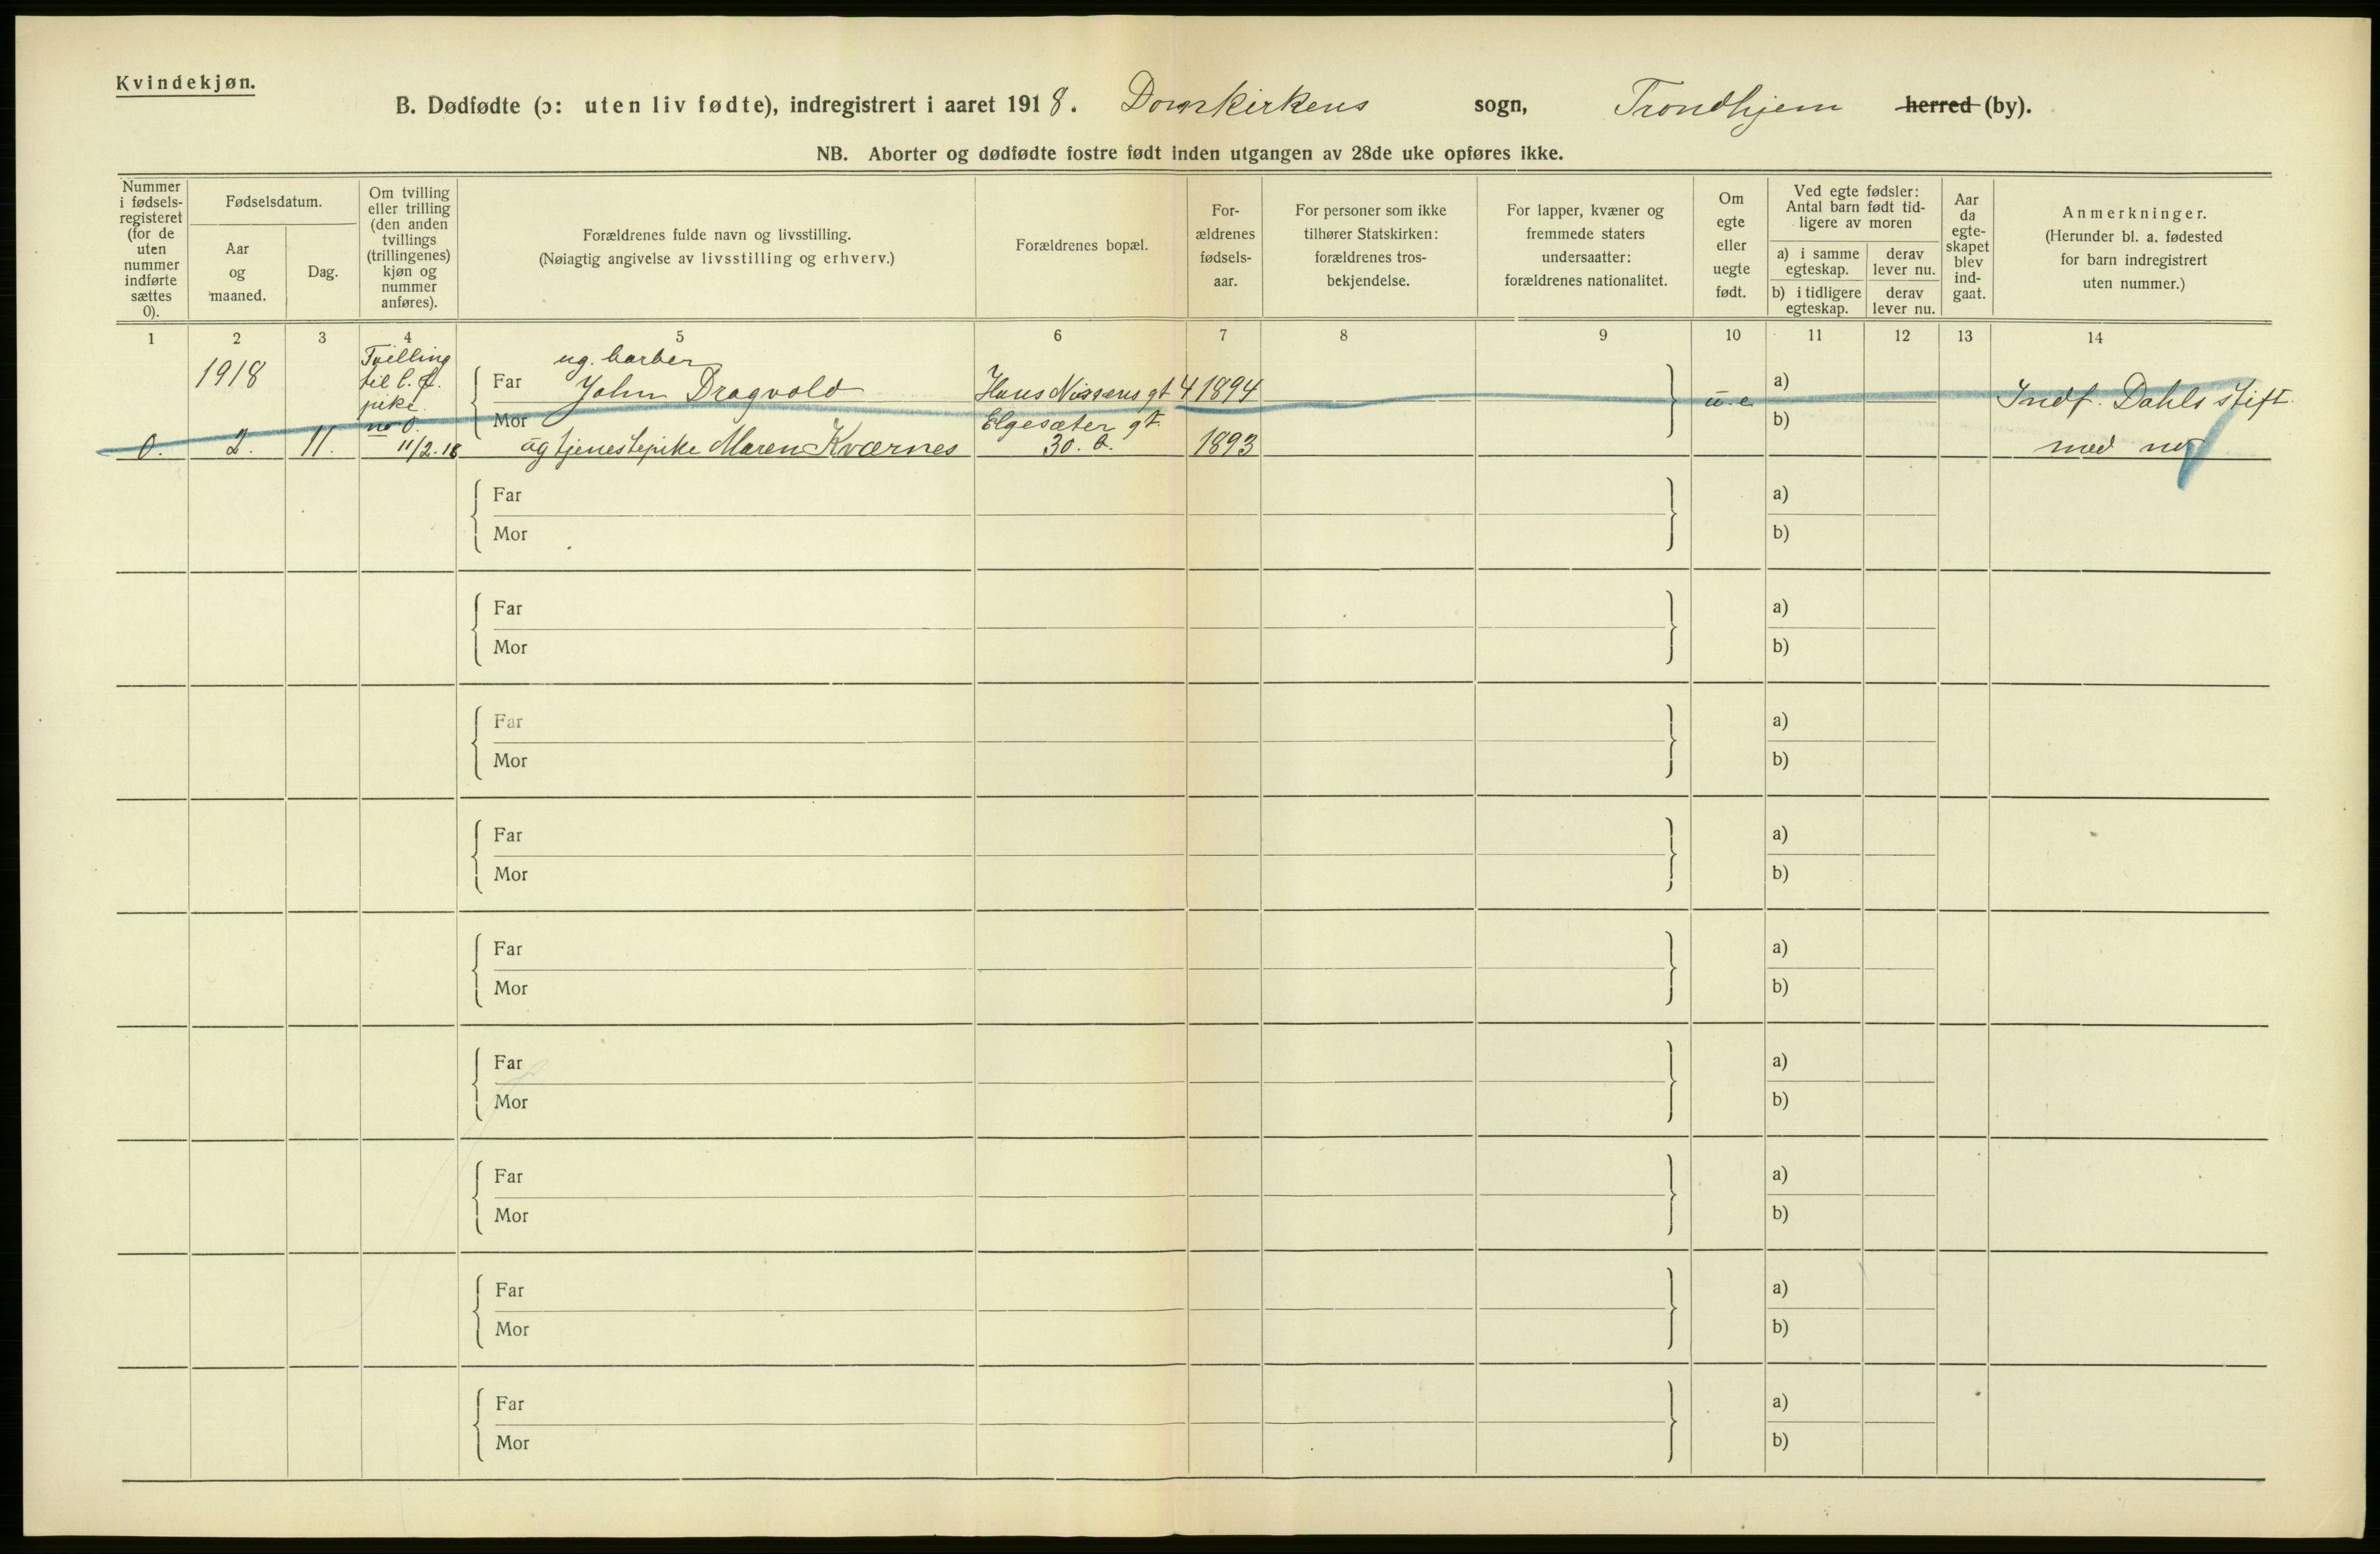 Kvindekjøn.
B. Dødfødte (ɔ: uten liv fødte), indregistrert i aaret 1918. Domkirkens sogn, Trondhjem herred (by).
NB. Aborter og dødfødte fostre født inden utgangen av 28de uke opføres ikke.
Nummer
i fødsels-
registeret
(for de
uten
nummer
indførte
sættes
0).
Fødselsdatum.
Aar
og
maaned.
Dag.
Om tvilling
eller trilling
(den anden
tvillings
(trillingenes)
kjøn og
nummer
anføres).
Forældrenes fulde navn og livsstilling.
(Nøiagtig angivelse av livsstilling og erhverv.)
Forældrenes bopæl.
For-
ældrenes
fødsels-
aar.
For personer som ikke
tilhører Statskirken:
forældrenes tros-
bekjendelse.
For lapper, kvæner og
fremmede staters
undersaatter:
forældrenes nationalitet.
Om
egte
eller
uegte
født.
Ved egte fødsler:
Antal barn født tid-
ligere av moren
a) i samme
egteskap.
derav
lever nu.
b) i tidligere
egteskap.
derav
lever nu.
Aar
da
egte-
skapet
blev
ind-
gaat.
Anmerkninger.
(Herunder bl. a. fødested
for barn indregistrert
uten nummer.)
1 2 3 4 5 6 7 8 9 10 11 12 13 14
1918
0. 2. 11.
Tvilling
til l. f.
pike
no 0.
11/2.18
ug. barber
Far John Dragvold
Mor
ug tjenestepike Maren Kværnes
Hans Nissens gt 4
Elgesæter gt.
30. b.
1894
1893
u. e.
a)
b)
Indf. Dahls stift.
med no
Far a)
Mor b)
Far a)
Mor b)
Far a)
Mor b)
Far a)
Mor b)
Far a)
Mor b)
Far a)
Mor b)
Far a)
Mor b)
Far a)
Mor b)
Far a)
Mor b)